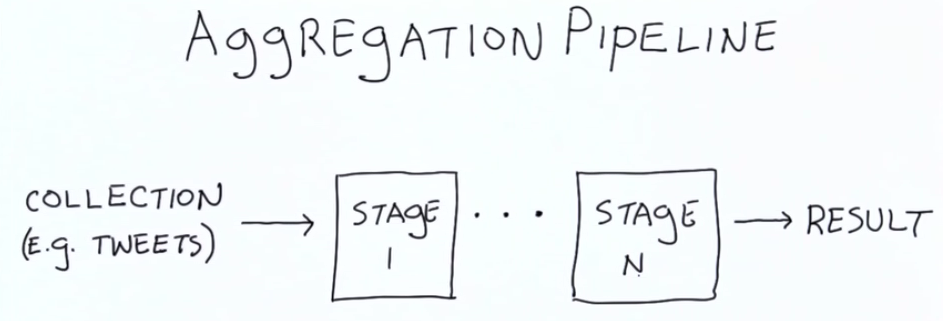 AggREgATION PIPELINE
COLLECTION
(E.g. TWEETS)
STAgE
1
. . .
STAgE
N
RESULT